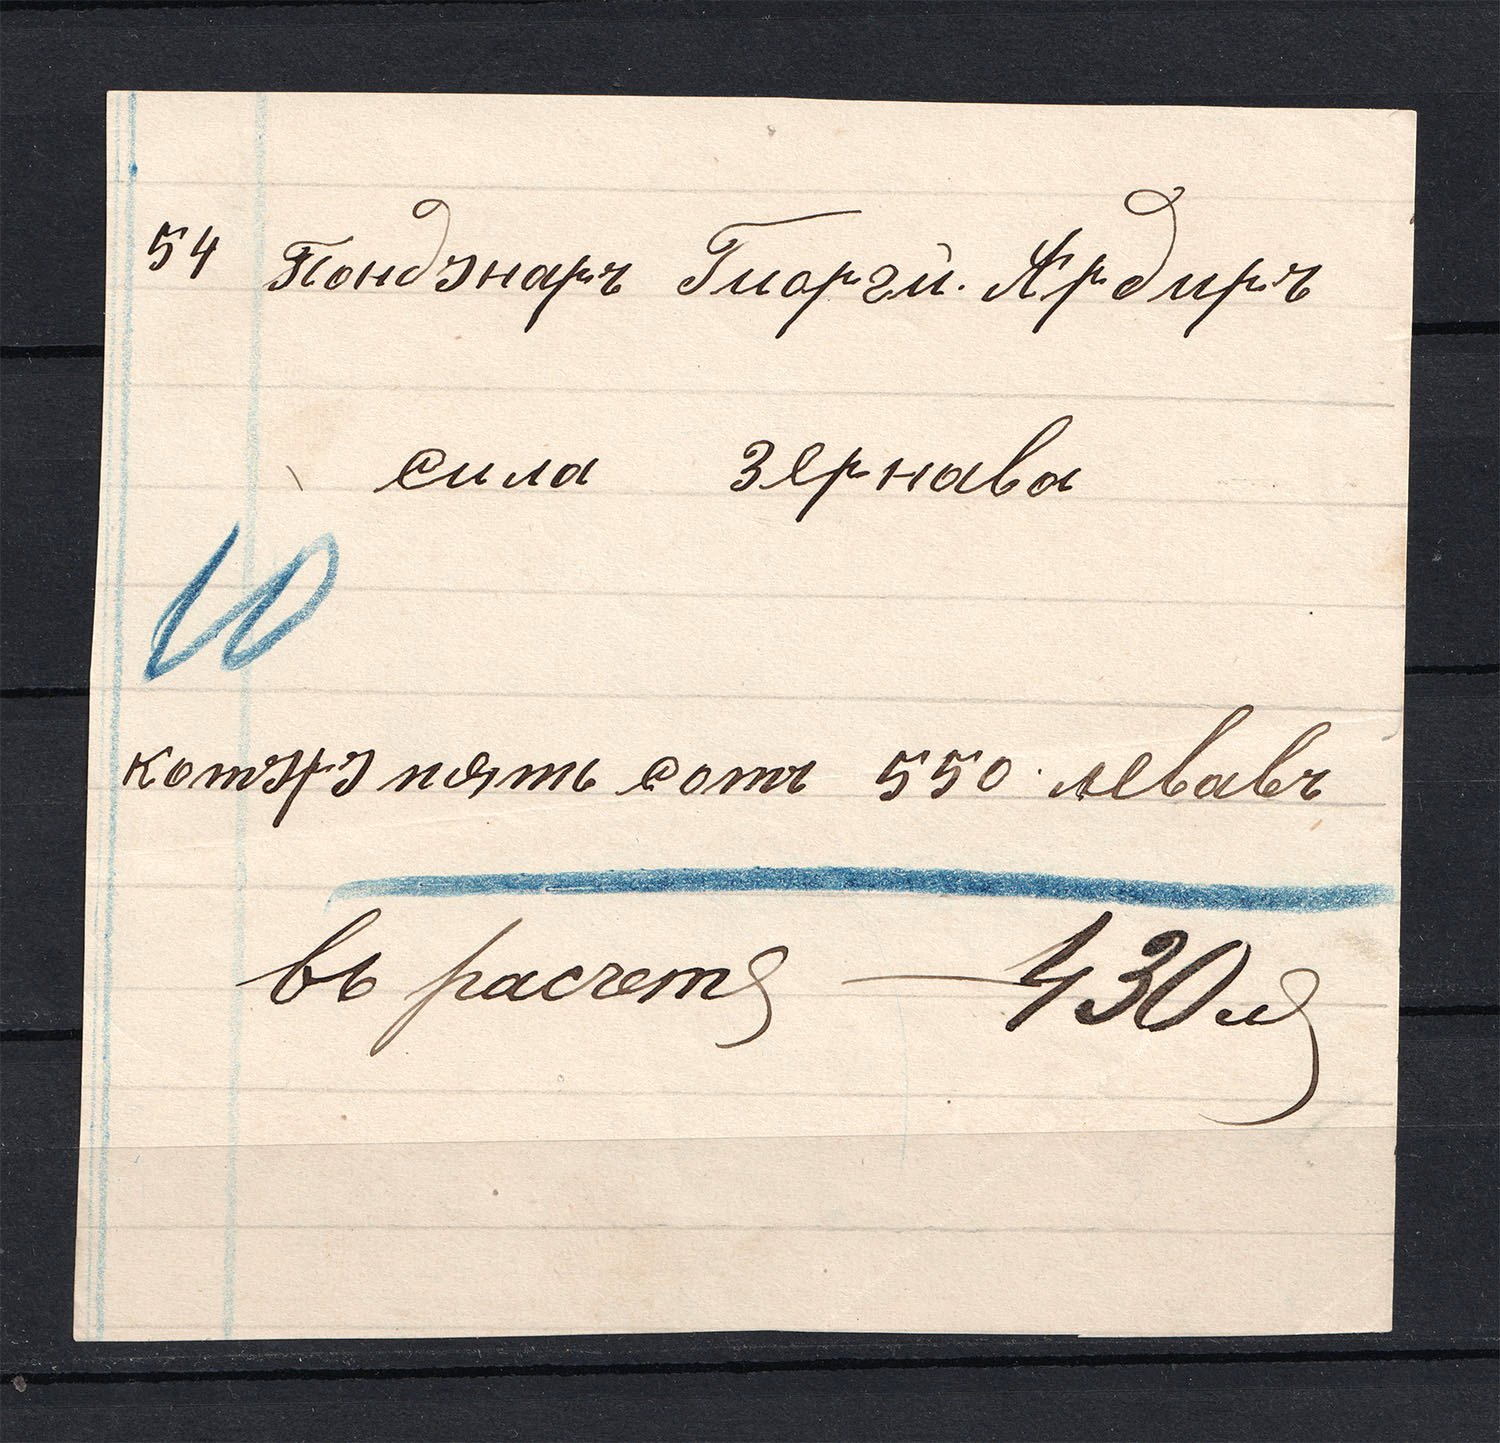 54 Пондзнаръ Гиоргй. Ардиръ
сила зернава
10
пять сотъ 550 левавъ
въ расчетъ — 430